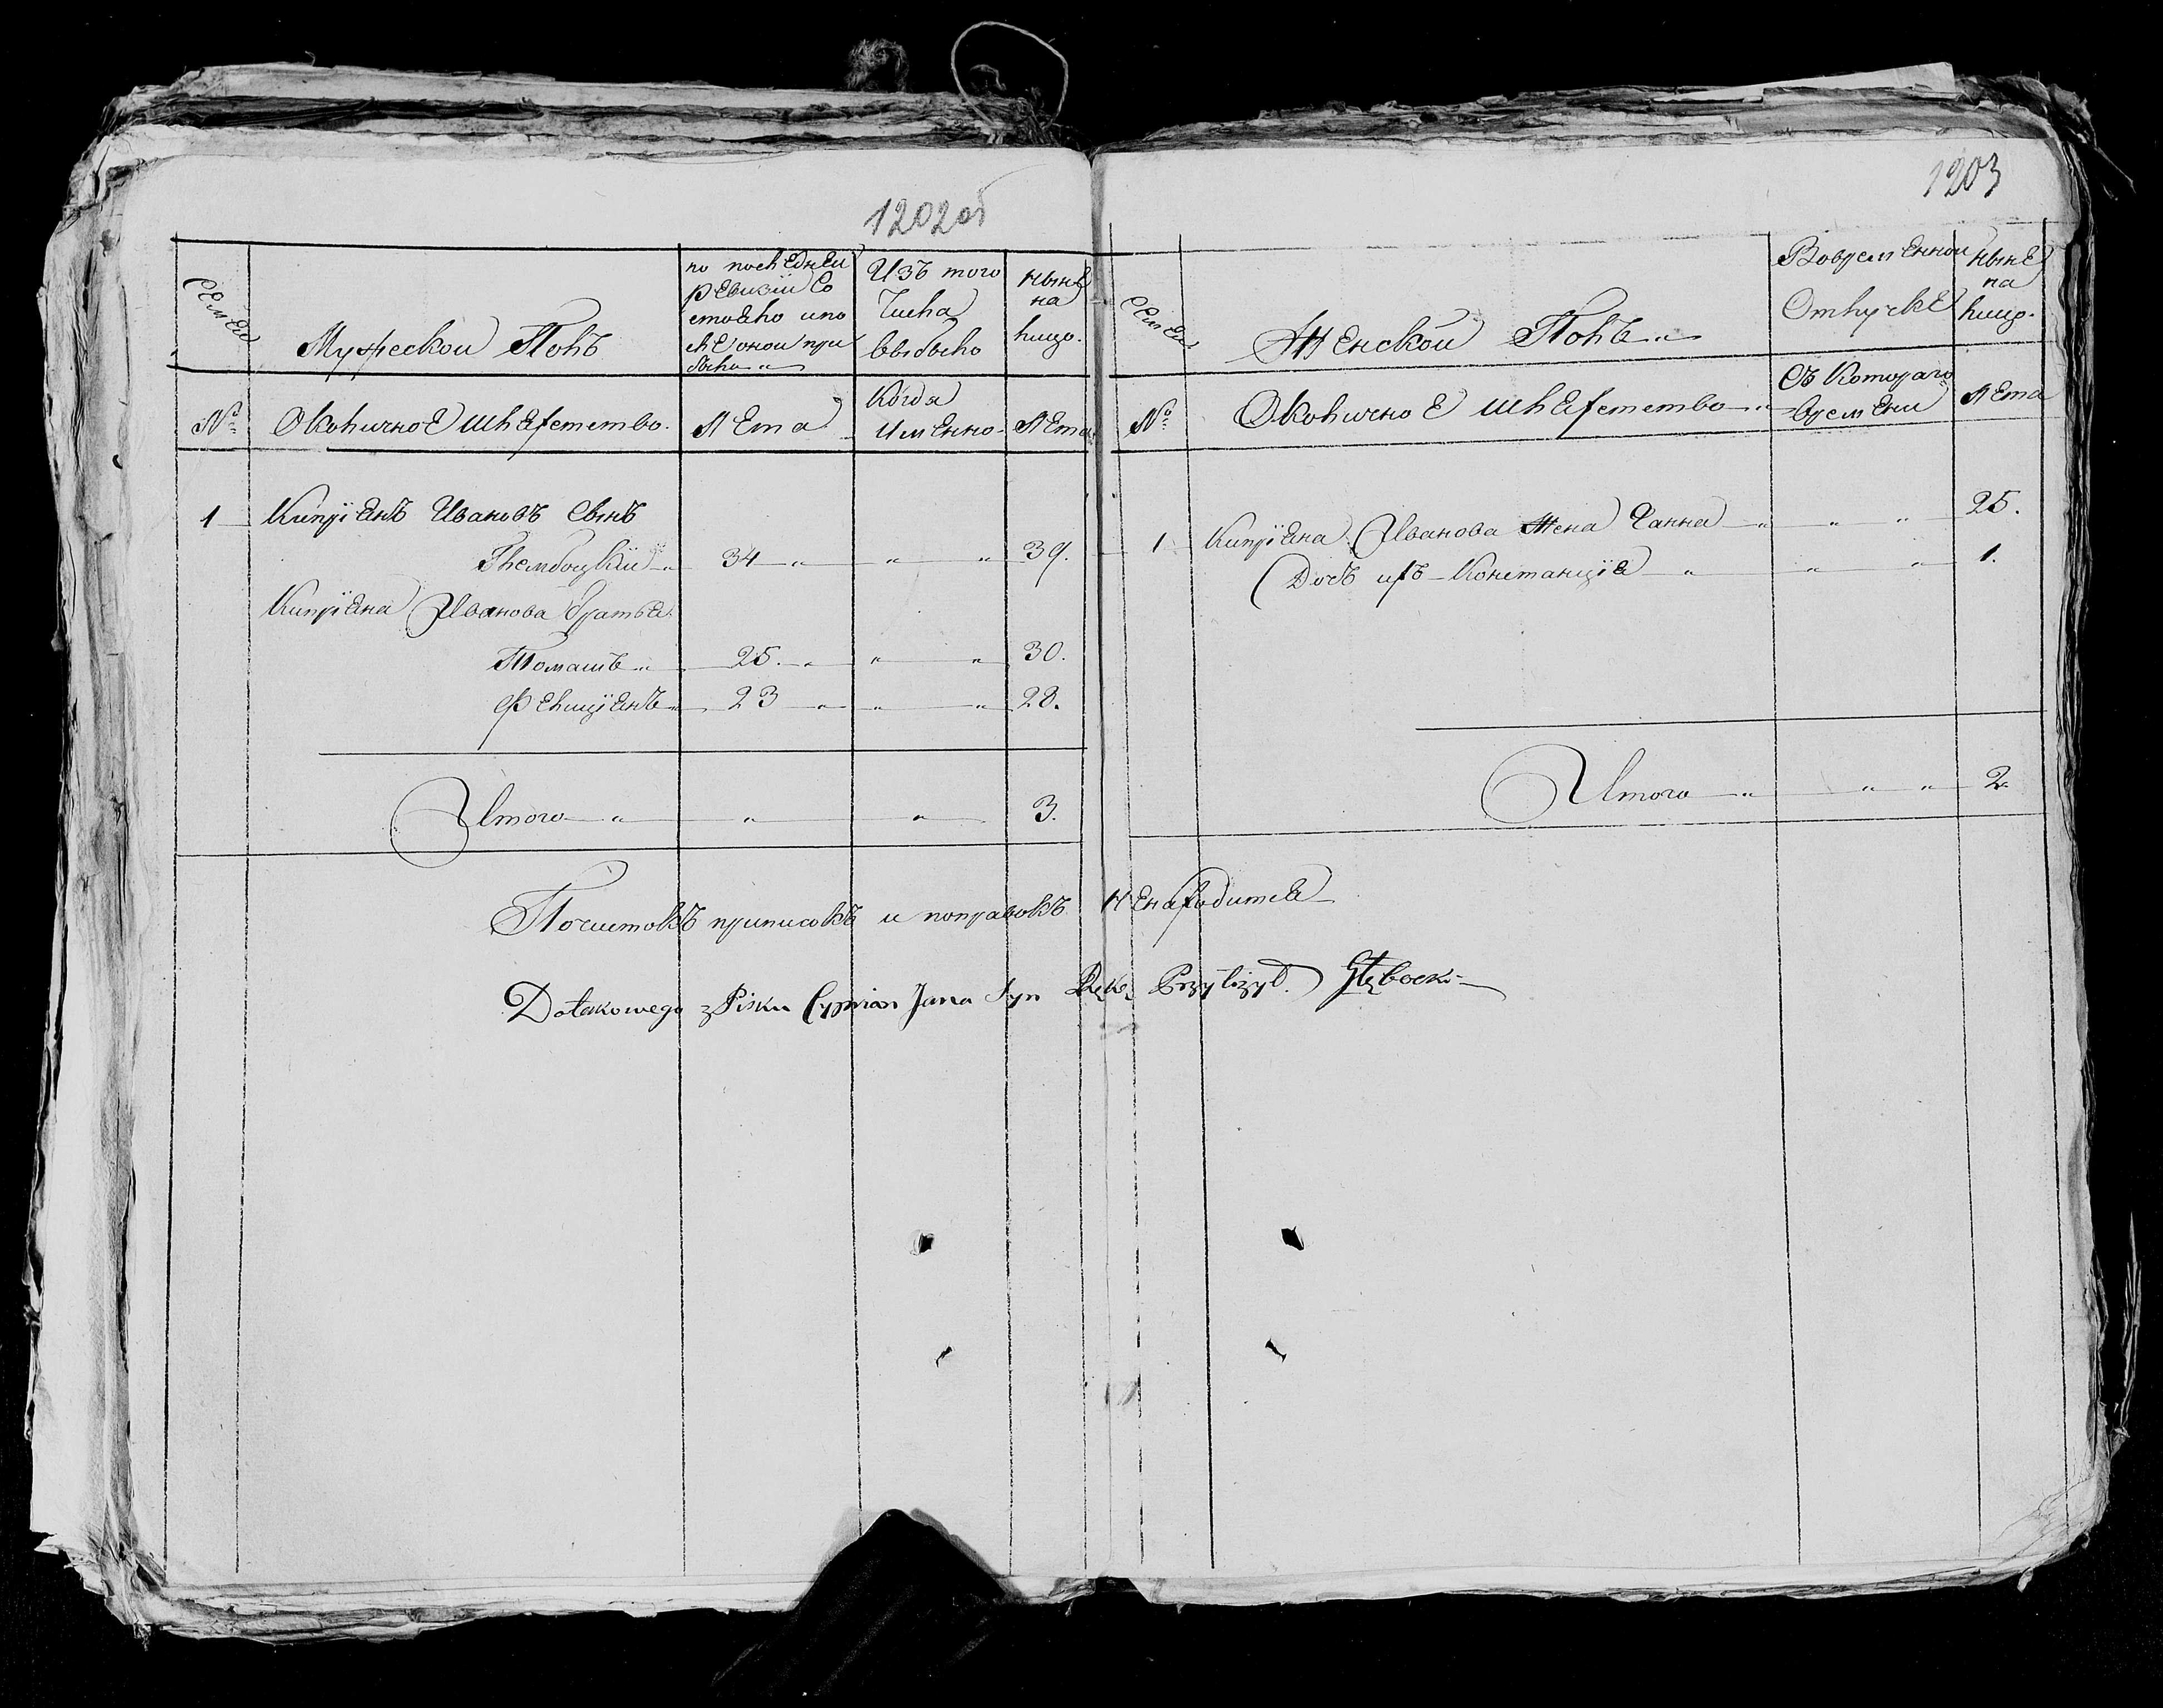 1202об
Семьи
Мужеской Полъ
по последней
ревизiи со
стояло ипо
сле оной при
было
Изъ того
Числа
выбыло
ныне
на
лицо.
№
Околичное шляхетство.
Лета
Когда
имянно
Лета
1
Кипрiянъ Ивановъ сынъ
Глембоцкiй
34
39.
Кипрiяна Иванова братья
Томашъ
25.
30.
Фелицiянъ
23
28.
Итого
3.
1203
Семьи
Женской Полъ
Вовременной
Отлучке
ныне
на
лицо.
№
Околичное шляхетство
Съ Котораго
времени
Лета
1
Кипрiяна Иванова Жена Ганна
25.
Дочь ихъ Констанцiя
1.
Итого
2.
Почистокъ приписокъ и поправокъ ненаходится
Dotakowego zPisku Cyprian Jana Syn Ręke Przyłożył. Głębocki